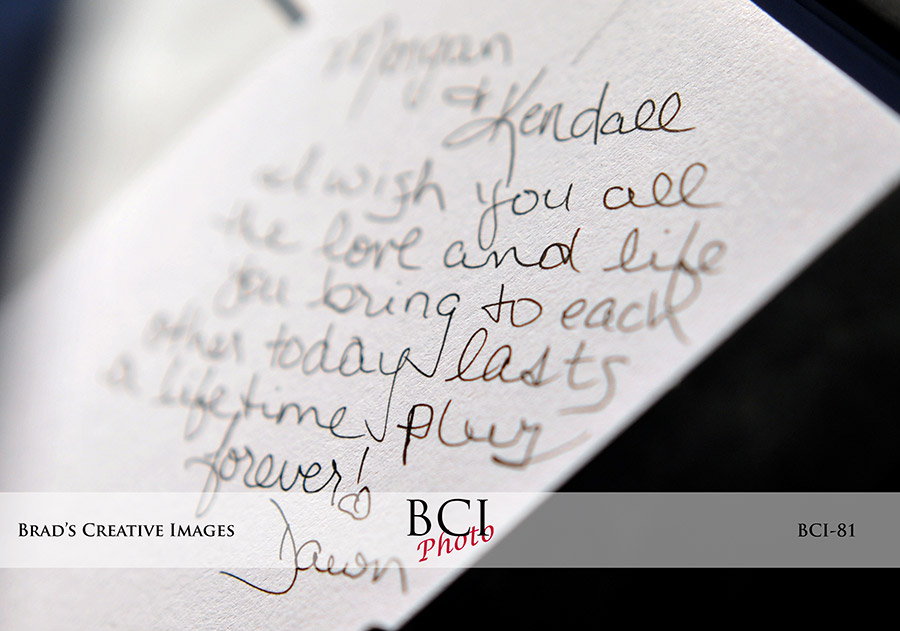 Morgan
& Kendall
I wish you all
the love and life
you bring to each
other today lasts
a lifetime plus
forever!
Dawn
BRAD'S CREATIVE IMAGES
BCI
Photo
BCI-81